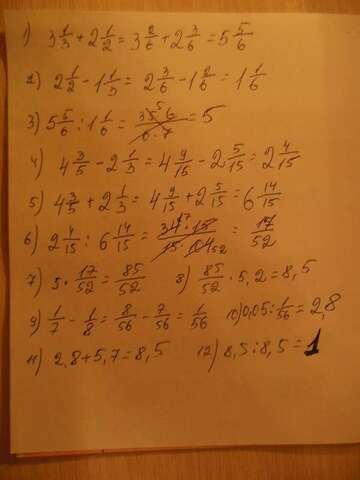 1) 3 1/3 + 2 1/2 = 3 2/6 + 2 3/6 = 5 5/6
2) 2 1/2 - 1 1/3 = 2 3/6 - 1 2/6 = 1 1/6
3) 5 5/6 : 1 1/6 = 35 5 6/6 · 7 = 5
4) 4 3/5 - 2 1/3 = 4 9/15 - 2 5/15 = 2 4/15
5) 4 3/5 + 2 1/3 = 4 9/15 + 2 5/15 = 6 14/15
6) 2 4/15 : 6 14/15 = 34 17 · 15/15 · 104 52 = 17/52
7) 5 · 17/52 = 85/52 8) 85/52 · 5,2 = 8,5
9) 1/7 - 1/8 = 8/56 - 7/56 = 1/56 10) 0,05 : 1/56 = 2,8
11) 2,8 + 5,7 = 8,5 12) 8,5 : 8,5 = 1